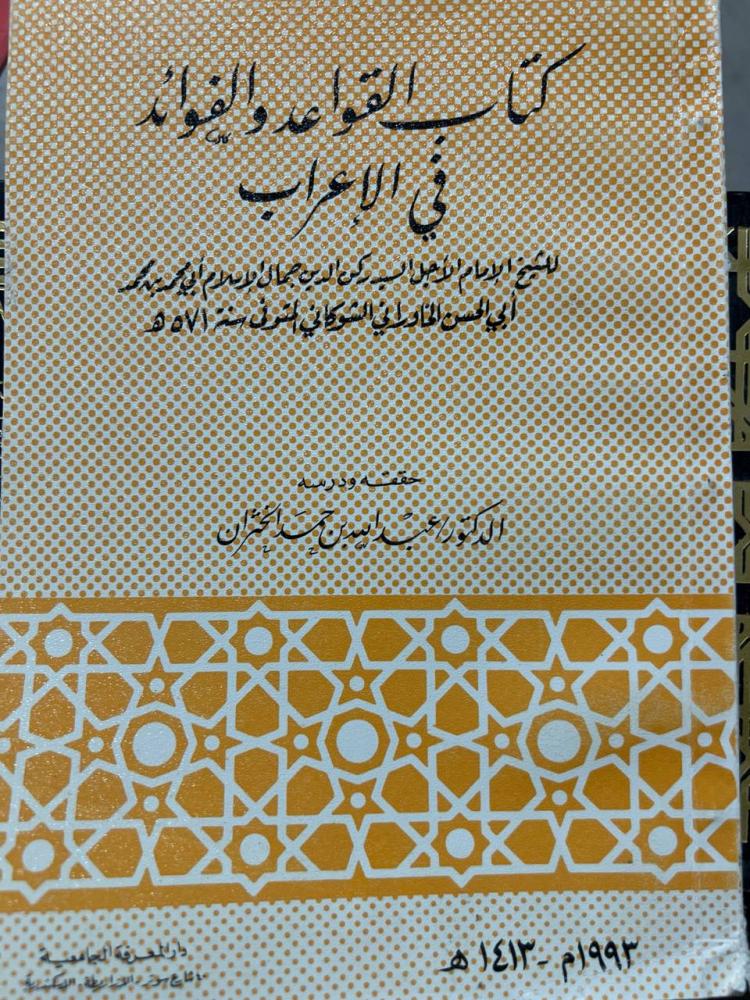 كتاب القواعد والفوائد
في الإعراب
للشيخ الإمام الأجل السيد ركن الدين جمال الإسلام أبي محمد بن محمد
أبي الحسن الخاوراني الشوكاني المتوفى سنة ٥٧١ هـ
حققه ودرسه
الدكتور/عبد الله بن حمد الخثران
١٩٩٣م - ١٤١٣ هـ
دار المعرفة الجامعية
٤٠ شارع سوتر - الأزاريطة - الإسكندرية